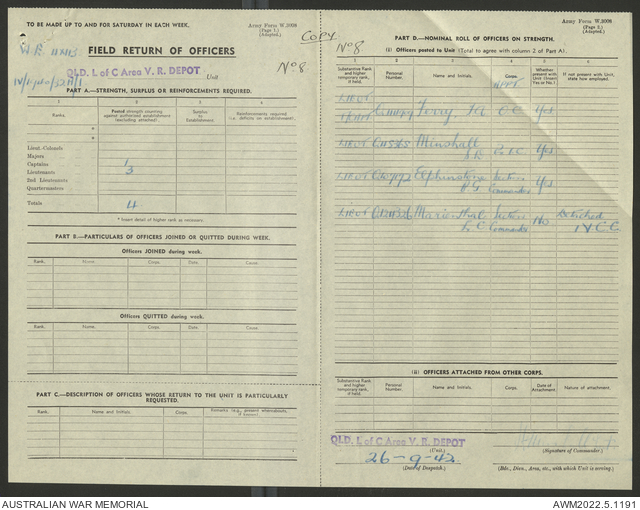 TO BE MADE UP TO AND FOR SATURDAY IN EACH WEEK.
Army Form W.3008
(Page 1.)
(Adapted.)
COPY
FIELD RETURN OF OFFICERS
No 8
QLD. L of C Area V. R. DEPOT
Unit
PART A.—STRENGTH, SURPLUS OR REINFORCEMENTS REQUIRED.
1 2 3 4
Ranks. Posted strength counting against authorized establishment (excluding attached). Surplus to Establishment. Reinforcements required (i.e. deficits on establishment).
*
*
Lieut.-Colonels
Majors
Captains 1
Lieutenants 3
2nd Lieutenants
Quartermasters
Totals 4
* Insert detail of higher rank as necessary.
PART B.—PARTICULARS OF OFFICERS JOINED OR QUITTED DURING WEEK.
Officers JOINED during week.
Rank. Name. Corps. Date. Cause.
Officers QUITTED during week.
Rank. Name. Corps. Date. Cause.
PART C.—DESCRIPTION OF OFFICERS WHOSE RETURN TO THE UNIT IS PARTICULARLY REQUESTED.
Rank. Name and Initials. Corps. Remarks (e.g., present whereabouts, if known).
Army Form W.3008
(Page 2.)
(Adapted.)
No 8
PART D.—NOMINAL ROLL OF OFFICERS ON STRENGTH.
(i) Officers posted to Unit (Total to agree with column 2 of Part A).
1 2 3 4 5 6
Substantive Rank and higher temporary rank, if held. Personal Number. Name and Initials. Corps. Whether present with Unit (Insert Yes or No.). If not present with Unit, state how employed.
LIEUT
Terry, O C Yes
LIEUT Minshall 2 i C Yes
LIEUT Elphinstone Section Yes
Commander
LIEUT Marienthal Section No Detached
Commander
(ii) OFFICERS ATTACHED FROM OTHER CORPS.
Substantive Rank and higher temporary rank, if held. Personal Number. Name and Initials. Corps. Date of Attachment. Nature of attachment.
QLD. L of C Area V. R. DEPOT
(Unit.)
(Signature of Commander.)
26-9-42
(Date of Despatch.)
(Bde., Divn., Area, etc., with which Unit is serving.)
AUSTRALIAN WAR MEMORIAL
AWM2022.5.1191